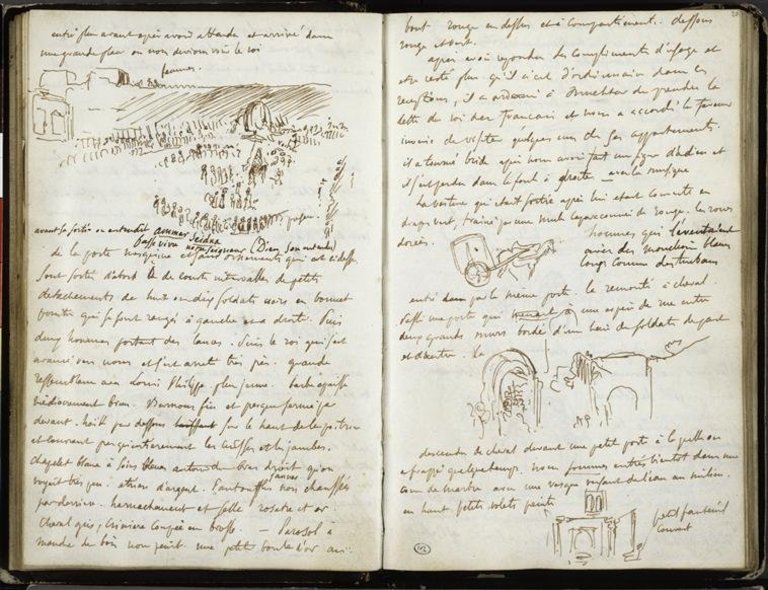 entré plus avant après avoir attendu et arrivé dans
une grande place où nous devions voir le roi
femmes.
avant sa sortie on entendit ammar Seidna
vive notre seigneur (Dieu sous entendu)
de la porte mesquine et sans ornements qui est ci dessus
sont sortis d'abord de courts intervalles de petits
détachements de huit ou dix soldats noirs en bonnet
pointu qui se sont rangés à gauche et à droite. Puis
deux hommes portant des lances. Puis le roi qui s'est
avancé vers nous et s'est arrêté très près. grande
ressemblance avec Louis Philippe, plus jeune. barbe épaisse
médiocrement brun. Burnous fin et presque fermé par
devant. haïk par dessous sur le haut de la poitrine
et couvrant presqu'entièrement les cuisses et les jambes.
chapelet blanc à soies bleues autour du bras droit qu'on
voyait très peu. étriers d'argent. Pantoufles jaunes non chaussées
par derrière. harnachement et selle rosâtre et or
cheval gris, crinière coupée en brosse. — Parasol à
manche de bois non peint. une petite boule d'or au
bout rouge en dessus et à compartiment. dessous
rouge et vert.
après avoir répondu les compliments d'usage et
être resté plus qu'il n'est d'ordinaire dans ces
réceptions, il a ordonné à Muchtar de prendre la
lettre du roi des Français et nous a accordé la faveur
inouïe de visiter quelques uns de ses appartements.
il a tourné bride après nous avoir fait un signe d'adieu et
s'est perdu dans la foule à droite avec la musique
La voiture qui était sortie après lui était couverte en
drap vert, traînée par une mule caparaçonnée de rouge. les roues
dorées.
hommes qui l'éventaient
avec des mouchoirs blancs
longs comme des turbans
entré dans par la même porte. là remonté à cheval.
Passé une porte qui menait à une espèce de rue entre
deux grands murs bordée d'une haie de soldats de part
et d'autre.
descendu de cheval devant une petite porte à laquelle on
a frappé quelque temps. nous sommes entrés bientôt dans une
cour de marbre avec une vasque versant de l'eau au milieu.
en haut petits volets peints
petit fauteuil
couvert